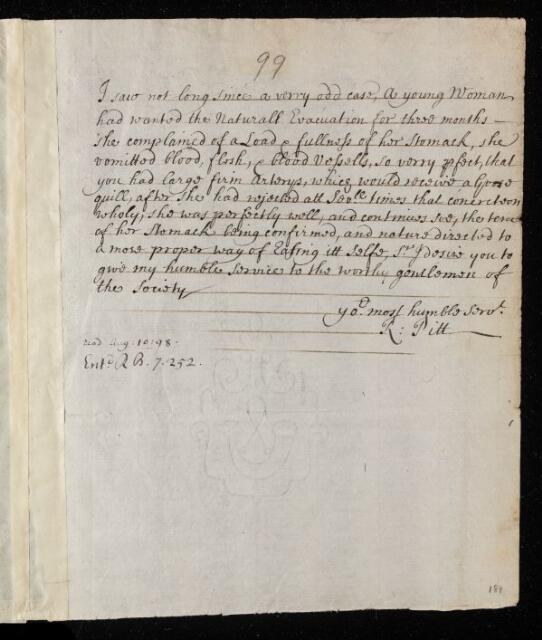 99
I saw not long since a verry odd case, A young Woman
had wanted the Naturall Evacuation for three months
she complained of a Load & fullness of her Stomack, she
vomitted blood, flesh, & blood Vessells, so verry pfect, that
you had large firm Arterys, which would receive a Goose
quill, after she had rejected att Sevll times that concretion
wholy, she was perfectly well, and continues soe, the tone
of her Stomack being confirmed, and nature directed to
a more proper way of Easing itt selfe, Sr I desire you to
give my humble service to the worthy gentlemen of
the Society
yor most humble Servt.
R: Pitt
read Aug. 10: 98.
Entd. R B. 7. 252.